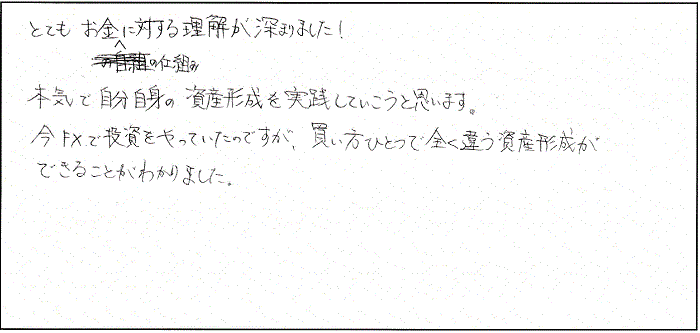 とても お金に対する理解が深まりました!
の仕組み
本気で自分自身の資産形成を実践していこうと思います。
今FXで投資をやっていたのですが、買い方ひとつで全く違う資産形成が
できることがわかりました。